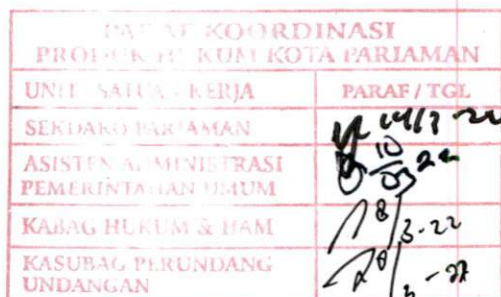 PARAF KOORDINASI
PRODUK HUKUM KOTA PARIAMAN
UNIT SATUAN KERJA PARAF / TGL
SEKDAKO PARIAMAN
ASISTEN ADMINISTRASI 10
PEMERINTAHAN UMUM 03 22
KABAG HUKUM & HAM 8/3-22
KASUBAG PERUNDANG
UNDANGAN